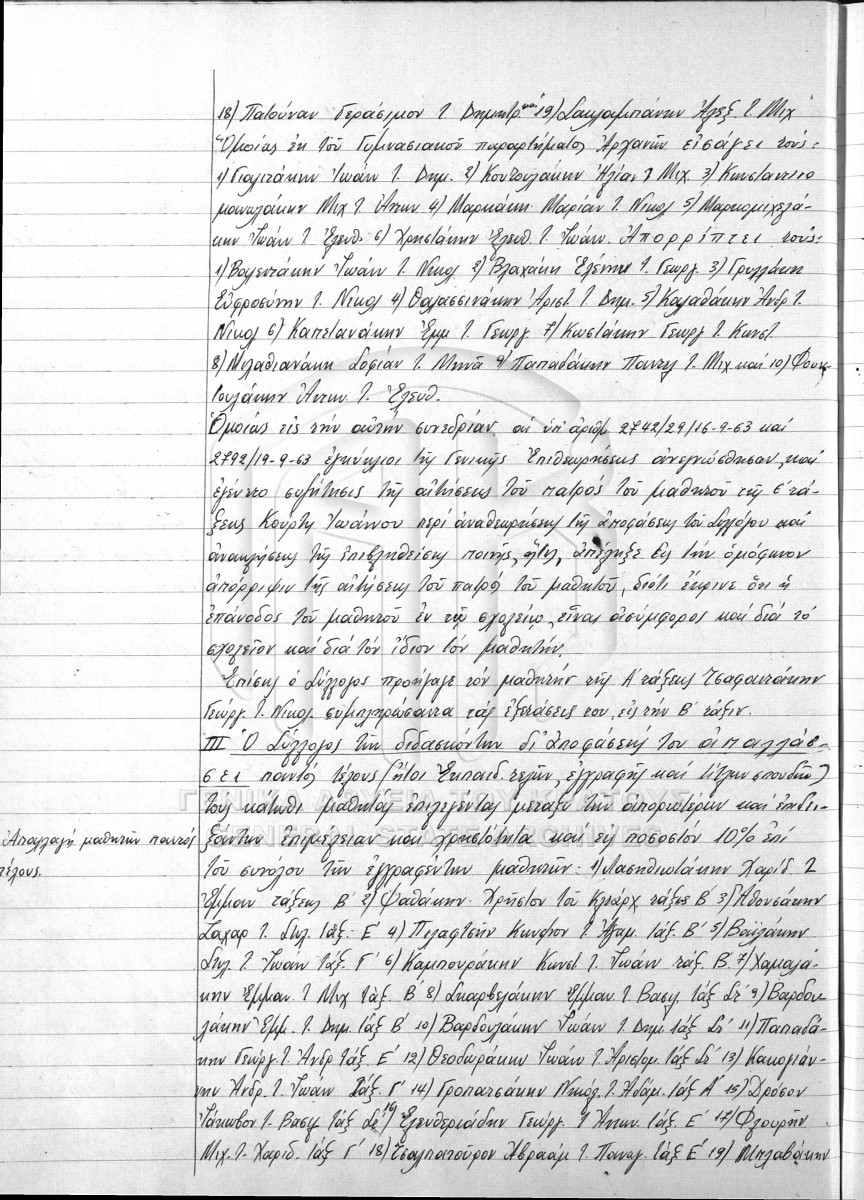 18) Πατούναν Γεράσιμον τ. Δημητρ. καί 19) Σακλαμπάνην Ἀλεξ. τ. Μιχ
Ὁμοίως ἐκ τοῦ Γυμνασιακοῦ παραρτήματος Ἀρχανῶν εἰσάγει τούς:
1) Γιαλιτάκην Ἰωάν τ. Δημ. 2) Κουτουλάκην Ἠλίαν τ. Μιχ 3) Κωνσταντινο
μανωλάκην Μιχ τ. Ἀντων 4) Μαρκάκη Μαρίαν τ. Νικολ 5) Μαρκομιχελά-
κην Ἰωάν τ. Ἐλευθ. 6) Χρηστάκην Ἐλευθ. τ. Ἰωάν. Ἀπορρίπτει τούς:
1) Βολεντάκην Ἰωάν τ. Νικολ 2) Βλαχάκη Ἑλένην τ. Γεωργ. 3) Γρυλλάκη
Εὐφροσύνην τ. Νικολ 4) Θαλασσινάκην Ἀριστ. τ. Δημ. 5) Καλαθάκην Ἀνδρ τ.
Νικολ 6) Καπετανάκην Ἐμμ τ. Γεωργ 7) Κωστάκην Γεωργ τ. Κωνστ.
8) Μιλαθιανάκη Σοφίαν τ. Μηνᾶ 9) Παπαδάκην Παντελ τ. Μιχ καί 10) Φουκ-
τουλάκην Ἀντων τ. Ἐλευθ.
Ὁμοίως εἰς τήν αὐτήν συνεδρίαν αἱ ὑπ' ἀριθμ 2742/29/16-9-63 καί
2792/19-9-63 ἐγκύκλιοι τῆς Γενικῆς Ἐπιθεωρήσεως ἀνεγνώσθησαν, καί
ἐγένετο συζήτησις τῆς αἰτήσεως τοῦ πατρός τοῦ μαθητοῦ τῆς Ε' τά-
ξεως Κουρτη Ἰωάννου περί ἀναθεωρήσεως τῆς ἀποφάσεως τοῦ Συλλόγου καί
ἀνακλήσεως τῆς ἐπιβληθείσης ποινῆς, ἥτις, ἀπέληξε εἰς τήν ὁμόφωνον
ἀπόρριψιν τῆς αἰτήσεως τοῦ πατρός τοῦ μαθητοῦ, διότι ἔκρινε ὅτι ἡ
ἐπάνοδος τοῦ μαθητοῦ ἐν τῷ σχολείῳ, εἶναι ἀσύμφορος καί διά τό
σχολεῖον καί διά τόν ἴδιον τόν μαθητήν.
Ἐπίσης ὁ Σύλλογος προήγαγε τόν μαθητήν τῆς Α' τάξεως Τσαφαντάκην
Γεώργ. τ. Νικολ. συμπληρώσαντα τάς ἐξετάσεις του, εἰς τήν Β' τάξιν.
III Ὁ Σύλλογος τῶν διδασκόντων δι' ἀποφάσεώς του ἀπαλλάσ-
σει παντός τέλους (ἤτοι Ἐκπαιδ. τελῶν, ἐγγραφῆς καί τίτλων σπουδῶν)
τούς κάτωθι μαθητάς ἐπιλεγέντας μεταξύ τῶν ἀπορωτέρων καί ἐπιδει-
ξάντων ἐπιμέλειαν καί χρηστότητα καί εἰς ποσοστόν 10% ἐπί
Ἀπαλλαγή μαθητῶν παντός
τέλους.
τοῦ συνόλου τῶν ἐγγραφέντων μαθητῶν: 1) Λασηθιωτάκην Χαρίδ. τ.
Ἐμμαν τάξεως Β' 2) Ψαθάκην Χρῆστον τοῦ Κλεάρχ τάξεως Β' 3) Ἀθουσάκην
Ζαχαρ τ. Στυλ. τάξ. Ε' 4) Πιλαφτσῆν Κων τ. Ἀγαμ. τάξ. Β' 5) Βοϊλάκην
Στυλ. τ. Ἰωάν τάξ. Γ' 6) Καμπουράκην Κωνστ τ. Ἰωάν τάξ. Β' 7) Χαμαλά-
κην Ἐμμαν. τ. Μιχ τάξ. Β' 8) Σκαρβελάκην Ἐμμαν. τ. Βασιλ τάξ Στ' 9) Βαρδου-
λάκην Ἐμμ. τ. Δημ. τάξ Β' 10) Βαρδουλάκην Ἰωάν τ. Δημ τάξ Στ' 11) Παπαδά-
κην Γεώργ. τ. Ἀνδρ τάξ. Ε' 12) Θεοδωράκην Ἰωάν τ. Ἀριστομ. τάξ Στ' 13) Κακογιάν-
νην Ἀνδρ. τ. Ἰωάν τάξ. Γ' 14) Γροπατσάκην Νικόλ. τ. Ἀδάμ. τάξ Α' 15) Δρόσον
Ἰάκωβον τ. Βασιλ τάξ Στ' 16) Ἐλευθεριάδην Γεώργ. τ. Ἀντων. τάξ. Ε' 17) Φλουρῆν
Μιχ. τ. Χαριδ. τάξ Γ' 18) Τσαλπατοῦρον Ἀβραάμ τ. Παναγ. τάξ Ε' 19) Μπλαβάκην
ΓΕΝΙΚΑ ΑΡΧΕΙΑ ΤΟΥ ΚΡΑΤΟΥΣ
GENERAL STATE ARCHIVES